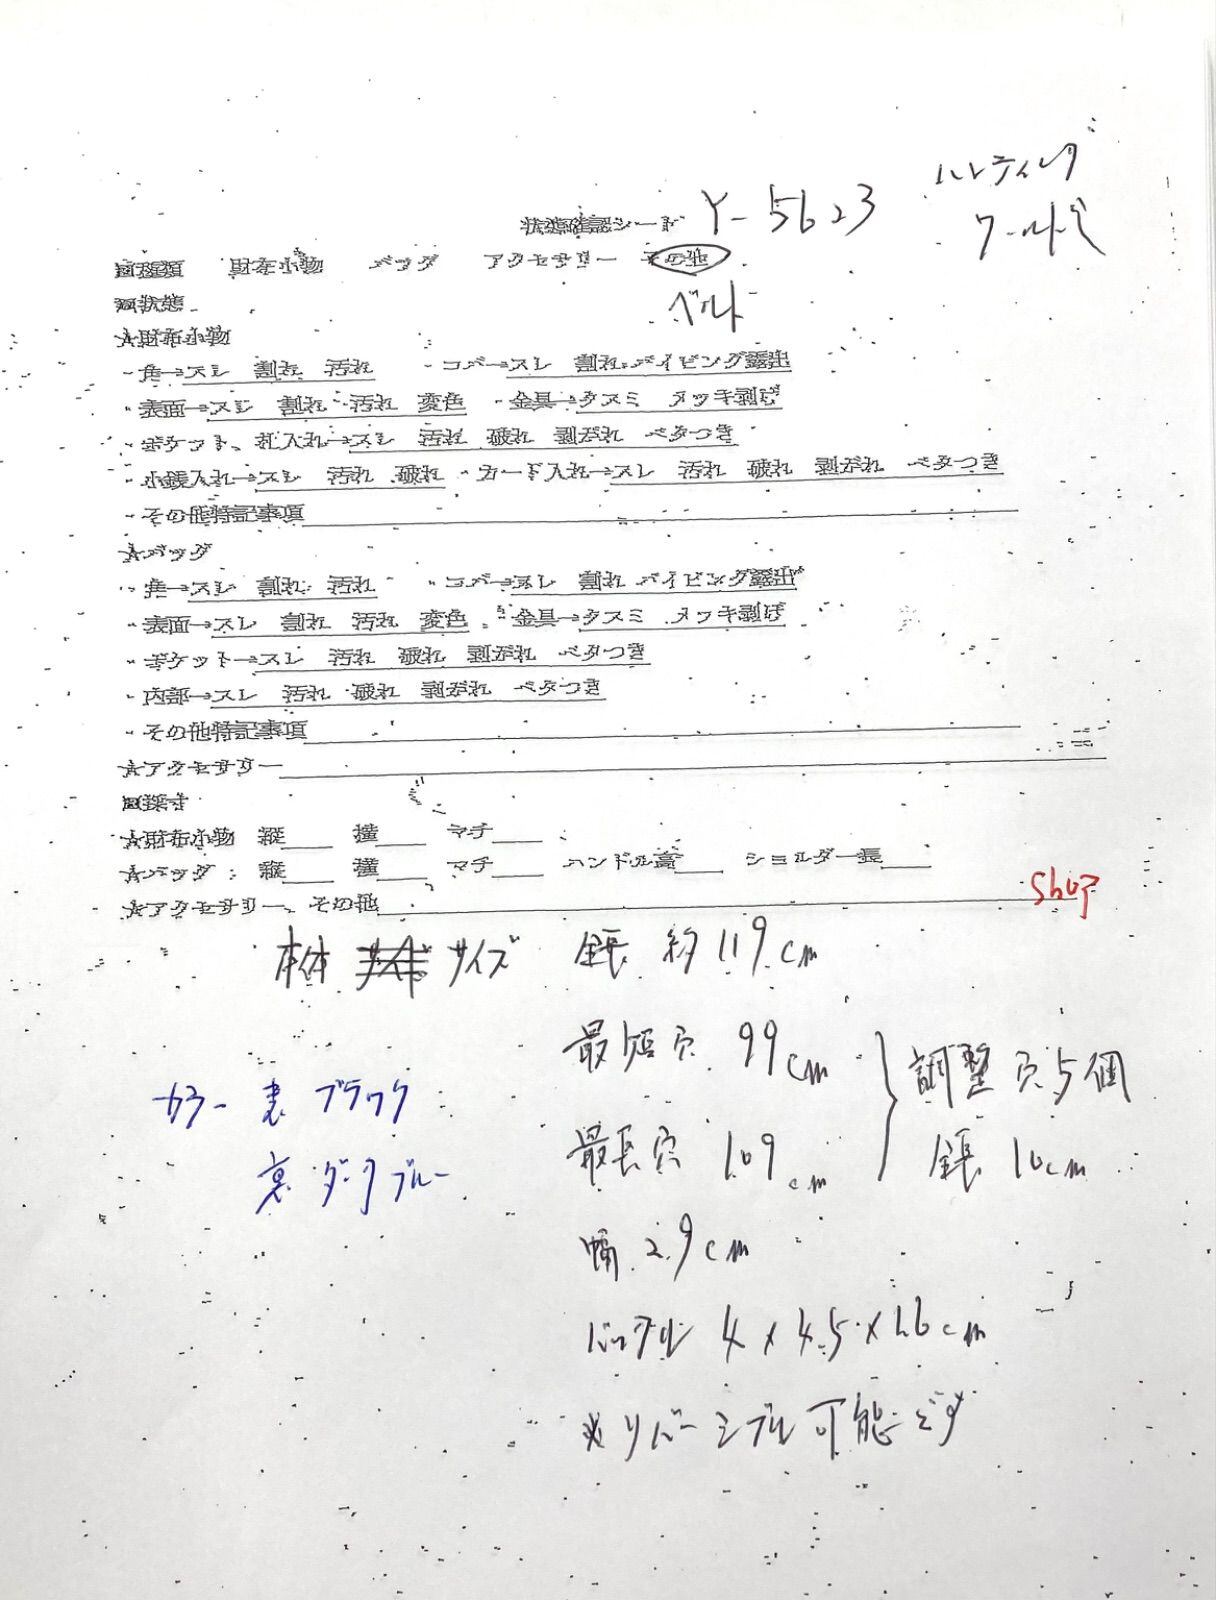 ハンティング
ワールド
状態確認シート Y-5623
□種類 財布小物 バッグ アクセサリー その他
ベルト
□状態
☆財布小物
・角→スレ 割れ 汚れ ・コバ→スレ 割れ パイピング露出
・表面→スレ 割れ 汚れ 変色 ・金具→クスミ メッキ剥げ
・ポケット、札入れ→スレ 汚れ 破れ 剥がれ ベタつき
・小銭入れ→スレ 汚れ 破れ ・カード入れ→スレ 汚れ 破れ 剥がれ ベタつき
・その他特記事項
☆バッグ
・角→スレ 割れ 汚れ ・コバ→スレ 割れ パイピング露出
・表面→スレ 割れ 汚れ 変色 ・金具→クスミ メッキ剥げ
・ポケット→スレ 汚れ 破れ 剥がれ ベタつき
・内部→スレ 汚れ 破れ 剥がれ ベタつき
・その他特記事項
☆アクセサリー
□採寸
☆財布小物 縦 横 マチ
☆バッグ: 縦 横 マチ ハンドル高 ショルダー長
☆アクセサリー、その他
本体 サイズ 全長 約119cm
最短穴 99cm
調整穴5個
カラー 表 ブラック
最長穴 109cm
全長 10cm
裏 ダークブルー
幅 2.9cm
バックル 4×4.5×1.6cm
※リバーシブル可能です